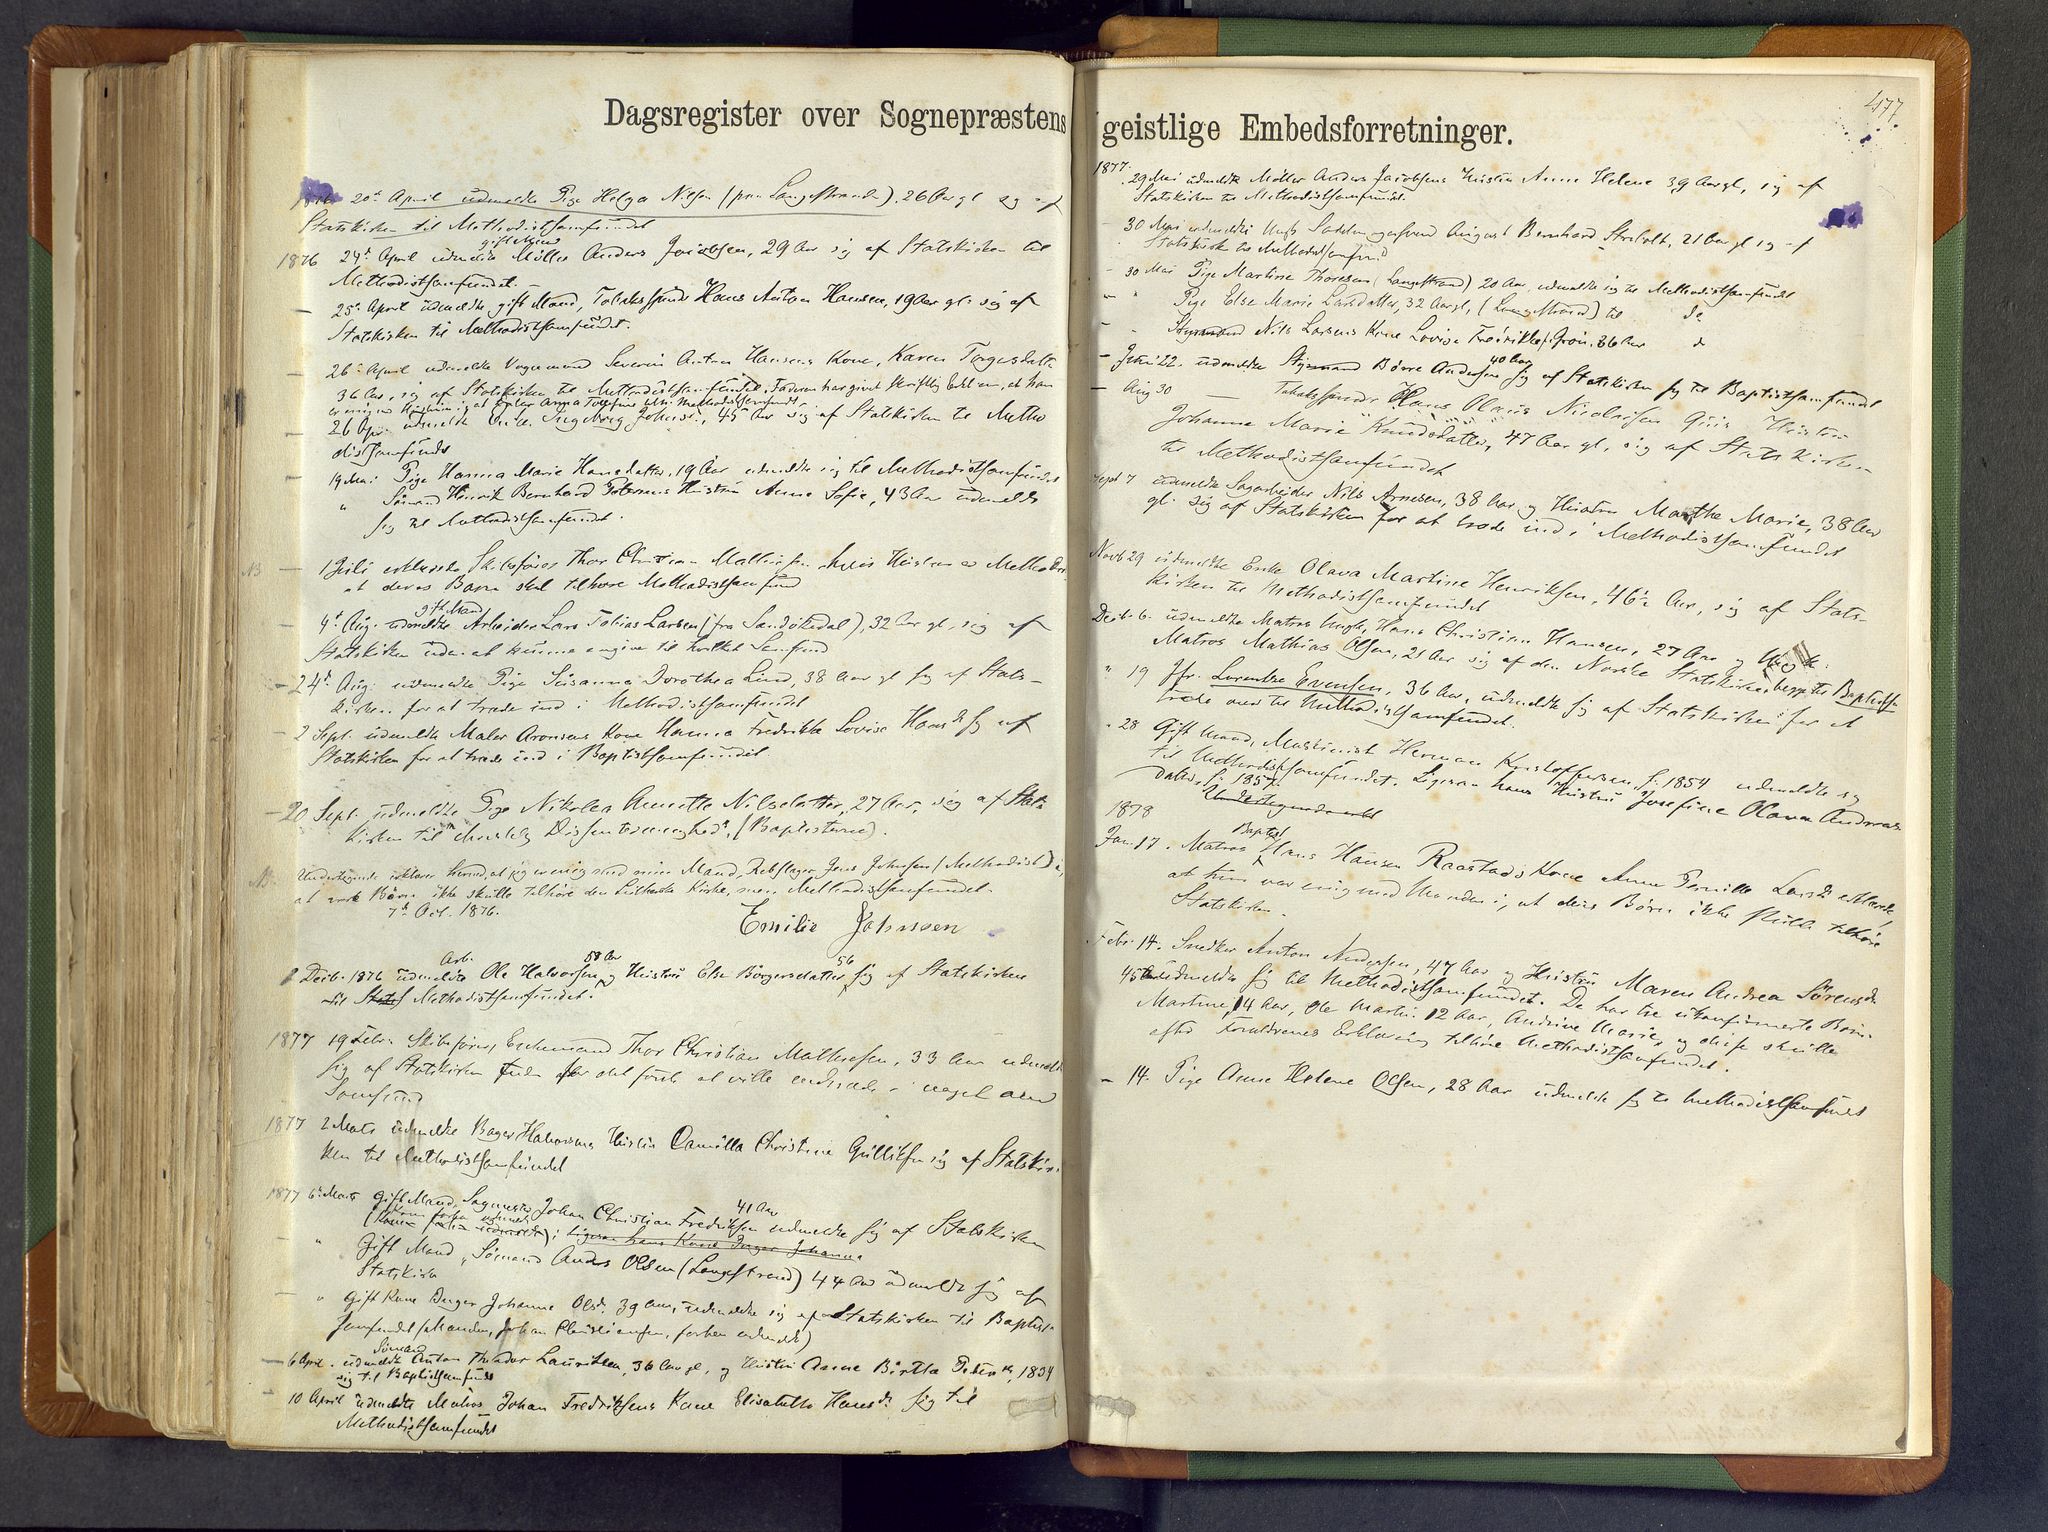 Dagsregister over Sognepræstens
1876 20de April udmeldte Pige Helga Nilsen (paa Langestranden), 26 Aar gl sig af
Statskirken til Methodistsamfundet
gift Mand
1876 24de April udmeldte Møller Anders Jacobsen, 29 Aar sig af Statskirken til
Methodistsamfundet.
25de April udmeldte gift Mand, Hans Anton Hansen, 19 Aar gl. sig af
Statskirken til Methodistsamfundet.
26de April udmeldte Vognmand Severin Anton Hansens Kone, Karen
36 Aar, sig af Statskirken til Methodistsamfundet, Faderen har givet skriftlig
26 Apr. udmeldte Enke Ingeborg 45 Aar sig af Statskirken til Metho
distsamfundet
19 Mai Pige Hanna Marie Hansdatter, 19 Aar udmeldte sig til Methodistsamfundet
" Sømand Henrik Bernhard Hustru Anne Sofie, 43 Aar udmeldte
sig til Methodistsamfundet.
NB — 1 Juli erklærede Skibsfører Thor Christian hvis Hustru er Methodist
at deres Børn skal tilhøre Methodistsamfund
gift Mand
4de Aug. udmeldte Arbeider Lars Tobias Larsen (fra Sandøkedal), 32 Aar gl, sig af
Statskirken uden at kunne angive til hvilket Samfund
— 24de Aug. udmeldte Pige Susanna Dorothea Lind, 38 Aar gl sig af Stats-
kirken for at træde ind i Methodistsamfundet
— 2 Sept. udmeldte Maler Aronsens Kone Hanna Fredrikke Lovise Hansd sig af
Statskirken for at træde ind i Baptistsamfundet
— 20 Sept. udmeldte Pige Nikolea Annette Nilsdatter, 27 Aar, sig af Stats
kirken til Dissentermenighed, (Baptisterne).
NB. Undertegnede erklærer herved, at jeg er enig med min Mand, Rebslager Jens Johnsen (Methodist) i,
at vore Børn ikke skulle tilhøre den Lutherske Kirke, men Methodistsamfundet.
7de Oct. 1876.
Emilie Johnsen
Arb. 58 Aar 56
8 Decb. 1876 udmeldte Ole Halvorsen og Hustru Else Börgersdatter sig af Statskirken
til Methodistsamfundet.
1877 19 Febr. Skibsfører, Enkemand Thor Christian Mathiesen, 33 Aar udmeldte
sig af Statskirken uden for det første at ville indtræde i noget andet
Samfund
1877 2 Marts udmeldte Bager Halvorsens Hustru Camilla Christine Gulliksen sig af Statskir-
ken til Methodistsamfundet
41 Aar
1877 6te Marts Gift Mand, Johan Christian Fredriksen udmeldte sig af Statskirken
(Konen forhen udmeldt); Ligesaa hans Kone Inger Johanna
— " Gift Mand, Sømand Anders Olsen (Langestrand) 44 Aar udmeldte sig af
Statskirken
— " Gift Kone Inger Johanne Olsd. 39 Aar, udmeldte sig af Statskirken til Baptist-
samfundet (Manden, Johan Christiansen, forhen udmeldt)
Sømand
— 6 April. udmeldte Anton Theodor Lauritsen, 36 Aar gl, og Hustru Anne Birtha 1834
sig til Baptistsamfundet
— 10 April udmeldte Matros Johan Fredriksens Kone Elisabeth Hansd. sig til
Methodistsamfundet
477.
geistlige Embedsforretninger.
1877.
29 Mai udmeldte Møller Anders Jacobsens Hustru Anne Helene 39 Aar gl, sig af
Statskirken til Methodistsamfundet.
30 Mai udmeldte Ungk August Bernhard 21 Aar gl sig af
Statskirken til Methodistsamfund
- 30 Mai Pige Martine Thoresen (Langestrand) 20 Aar, udmeldte sig til Methodistsamfundet
- " Pige Else Marie Larsdatter, 32 Aar gl, (Langestrand) til do
- " Styrmand Nils Larsens Kone Lovise Fredrikke 36 Aar do
40 Aar
- Juni 22. udmeldte Styrmand Börre Andersen sig af Statskirken sig til Baptistsamfundet
— Aug 30 — Hans Olaus Nicolaisen Hustru
Johanne Marie Knudsdatter, 47 Aar gl, sig af Statskirken
til Methodistsamfundet
Sept 7 udmeldte Sagarbeider Nils Arnesen, 38 Aar og Hustru Marthe Marie, 38 Aar
gl. sig af Statskirken for at træde ind i Methodistsamfundet
Novb 29 udmeldte Enke Olava Martine Henriksen, 46½ Aar, sig af Stats-
kirken til Methodistsamfundet
Decb. 6. udmeldte Matros Ungk. Hans Christian Hansen, 27 Aar og Ungk.
Matros Mathias Olsen, 21 Aar sig af den Norske Statskirke, begge til Baptistsf
" 19 Jfr. Lorentze Evensen, 36 Aar, udmeldte sig af Statskirken for at
træde over til Methodistsamfundet.
" 28 Gift Mand, Maskinist Herman Kristoffersen, f. 1854 udmeldte sig
til Methodistsamfundet. Ligesaa hans Hustru Josefine Olava Andreas
datter, f. 1857.
1878
Baptist
Jan. 17. Matros Hans Hansen Raastads Kone Anne Pernille Larsd. erklærede,
at hun var enig med Manden i, at deres Börn ikke skulle tilhøre
Statskirken.
Febr. 14. Snedker Anton Andersen, 47 Aar og Hustru Maren Andrea Sörensd.
45 Aar udmeldte sig til Methodistsamfundet. De har tre ukonfirmerte Börn.
Martine, 14 Aar, Ole Martin 12 Aar, Andrine Marie, og disse skulle
efter Forældrenes Erklæring tilhøre Methodistsamfundet.
— 14. Pige Anne Helene Olsen, 28 Aar udmeldte sig til Methodistsamfundet